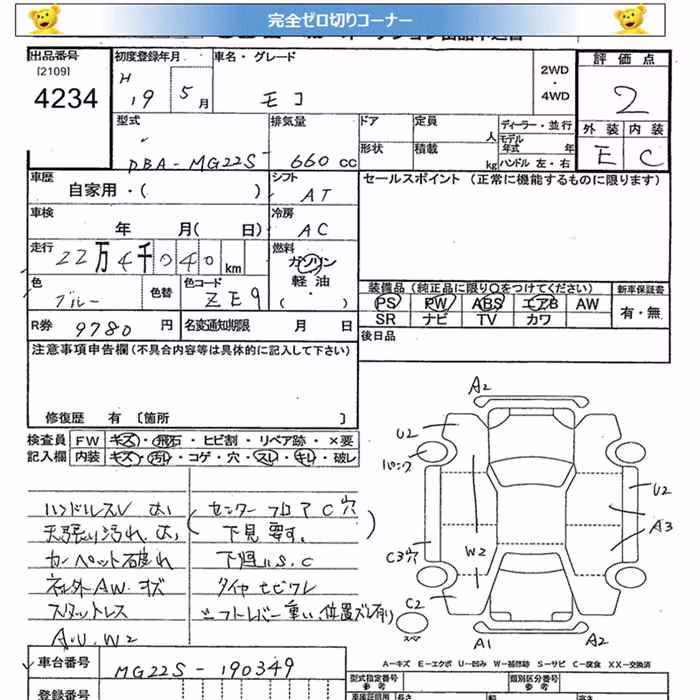 完全ゼロ切りコーナー
出品番号 初度登録年月 車名・グレード 2WD・4WD 評価点
[2109] H
4234 19 5月 モコ 2
外装 内装
E C
型式 排気量 ドア 定員 人 ディーラー・並行
形状 積載 kg モデル年式 年
ハンドル 左・右
DBA-MG22S 660cc
車歴 シフト セールスポイント (正常に機能するものに限ります)
自家用・( ) AT
車検 冷房
年 月( 日) AC
走行 燃料
22万4千040km ガソリン
軽油
( ・ )
色 色替 色コード
ブルー ZE9
装備品(純正品に限り○をつけてください) 新車保証書
PS PW ABS エアB AW 有・無
SR ナビ TV カワ
R券 9780円 名変通知期限 月 日 後日品
注意事項申告欄(不具合内容等は具体的に記入して下さい)
修復歴 有 [箇所 ]
検査員 FW キズ・飛石・ヒビ割・リペア跡・×要
記入欄 内装 キズ・汚れ・コゲ・穴・スレ・キレ・破レ
ハンドルスレ 大、
天張り汚れ 大、
カーペット破れ
社外AW.キズ
スタットレス
A.U.W2
(センターフロアC穴
下見要す。)
下廻りS.C
タイヤヒビワレ
シフトレバー重い、位置ズレ有り
A2
U2
パンク
U2
A3
W2
C3穴
C2
スペア
A1
A2
A-キズ E-エクボ U-凹み W-補修跡 S-サビ C-腐食 XX-交換済
車台番号 MG22S-190349
型式指定番号 参考 類別区分番号 参考
登録番号 車庫証明用 長さ 幅 高さ